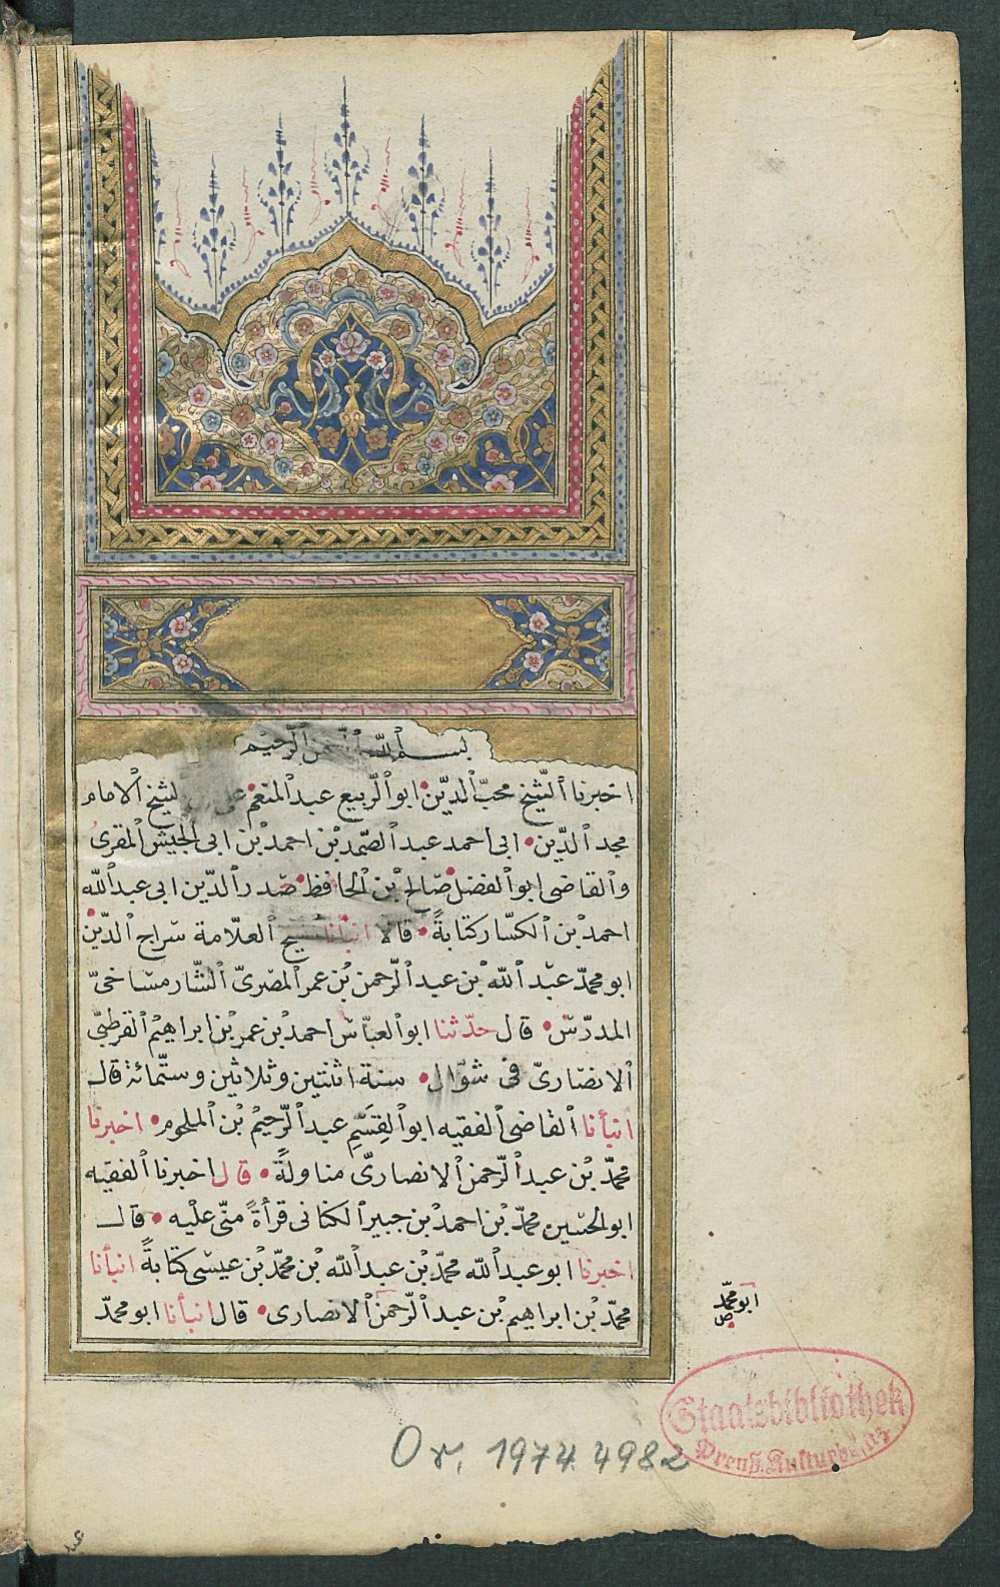 بسم الله الرحمن الرحيم
اخبرنا الشيخ محبّ الدّين ابو الرّبيع عبد المنعم الشيخ الامام
مجد الدّين ابى احمد عبد الصّمد بن احمد بن ابى الجيش المقرئ
والقاضى ابو الفضل صالح بن الحافظ صدر الدّين ابى عبد الله
احمد بن الكسّار كتابةً قالا انبأنا شيخ العلّامة سراج الدّين
ابو محمّد عبد الله بن عبد الرّحمن بن عمر المصرىّ الشّارمساحىّ
المدرّس قال حدّثنا ابو العبّاس احمد بن عمر بن ابراهيم القرطبىّ
الانصارىّ فى شوّال سنة اثنتين وثلاثين وستّمائة قال
انبأنا القاضى الفقيه ابو القسم عبد الرّحيم بن الملجوم اخبرنا
محمّد بن عبد الرّحمن الانصارىّ مناولةً قال اخبرنا الفقيه
ابو الحسين محمّد بن احمد بن جبير الكنانى قرأةً منّى عليه قال
اخبرنا ابو عبد الله محمّد بن عبد الله بن محمّد بن عيسى كتابةً انبأنا
محمّد بن ابراهيم بن عبد الرّحمن الانصارى قال انبأنا ابو محمّد
ابو محمّد
Staatsbibliothek
Preuß. Kulturbesitz
Or. 1974. 4982